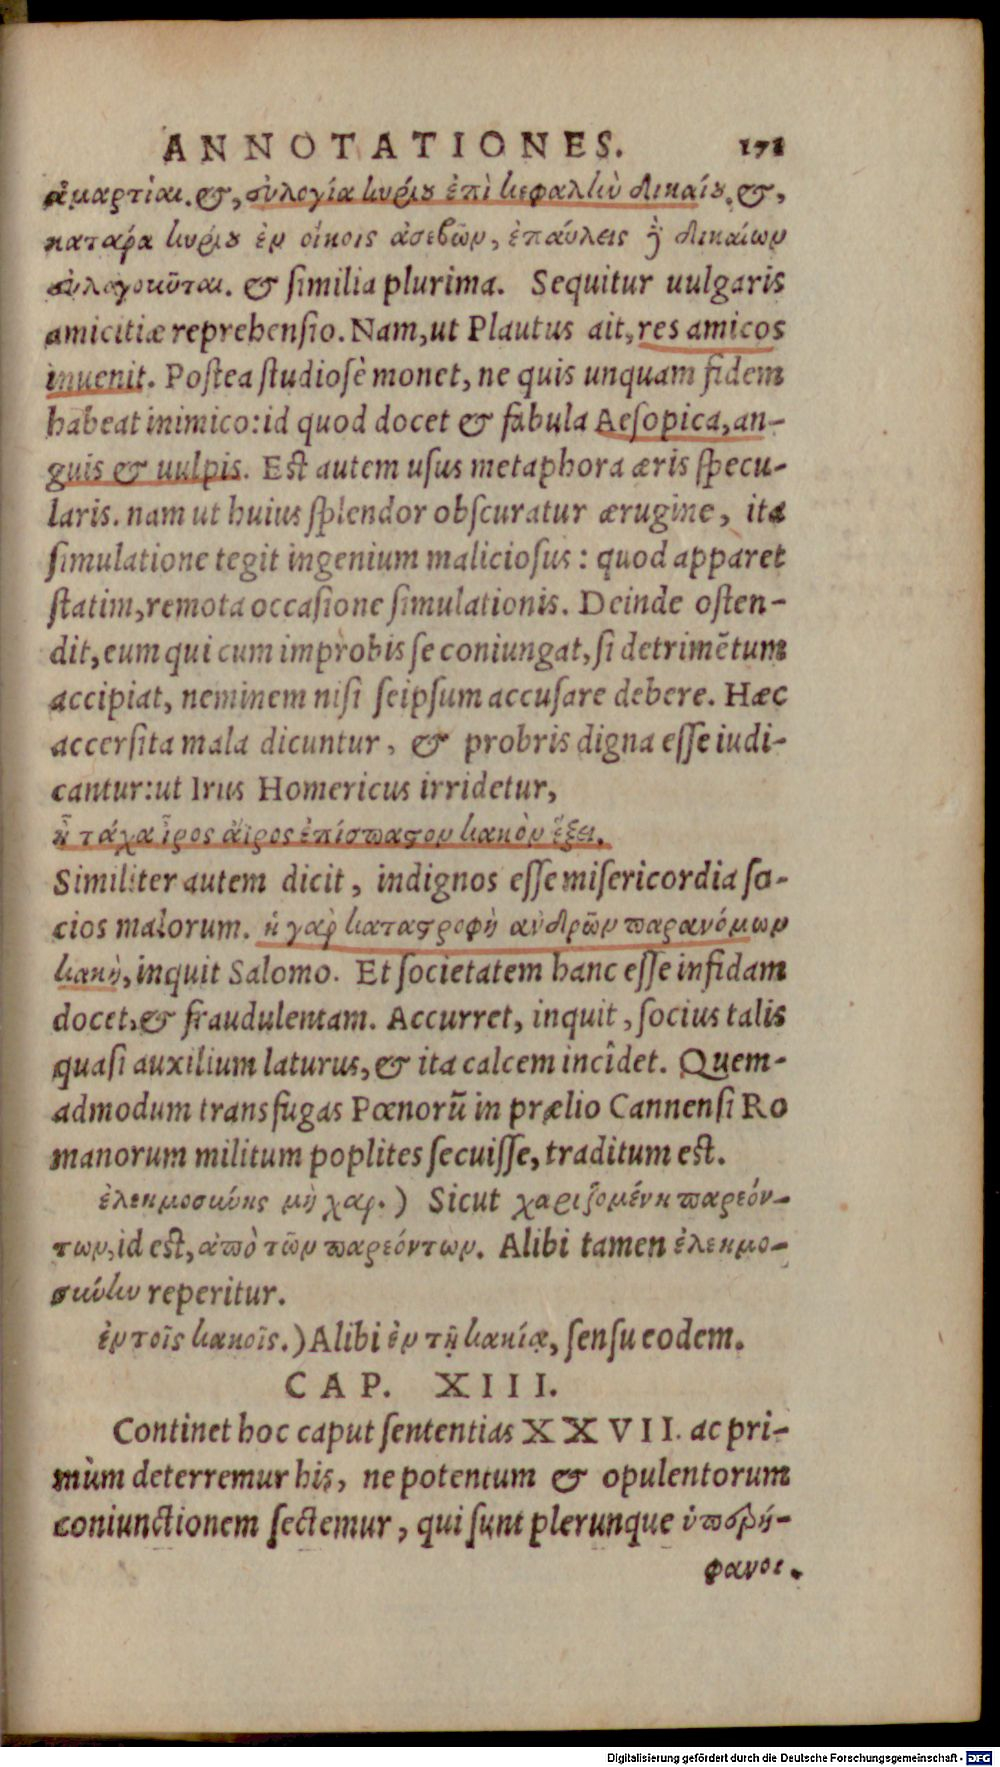 ANNOTATIONES. 171
ἁμαρτίαι. &, εὐλογία κυρίου ἐπὶ κεφαλὴν δικαίου. &,
κατάρα κυρίου ἐν οἴκοις ἀσεβῶν, ἐπαύλεις δὲ δικαίων
εὐλογοῦνται. & ſimilia plurima. Sequitur uulgaris
amicitiæ reprehenſio. Nam, ut Plautus ait, res amicos
inuenit. Poſtea ſtudioſè monet, ne quis unquam fidem
habeat inimico: id quod docet & fabula Aeſopica, an-
guis & uulpis. Eſt autem uſus metaphora æris ſpecu-
laris. nam ut huius ſplendor obſcuratur ærugine, ita
ſimulatione tegit ingenium malicioſus: quod apparet
ſtatim, remota occaſione ſimulationis. Deinde oſten-
dit, eum qui cum improbis ſe coniungat, ſi detrimẽtum
accipiat, neminem niſi ſeipſum accuſare debere. Hæc
accerſita mala dicuntur, & probris digna eſſe iudi-
cantur: ut Irus Homericus irridetur,
ἦ τάχα ἶρος ἄϊρος ἐπίσπαστον κακὸν ἕξει.
Similiter autem dicit, indignos eſſe miſericordia ſo-
cios malorum. ἡ γὰρ καταστροφὴ ανδρῶν παρανόμων
κακὴ, inquit Salomo. Et ſocietatem hanc eſſe infidam
docet, & fraudulentam. Accurret, inquit, ſocius talis
quaſi auxilium laturus, & ita calcem incîdet. Quem-
admodum transfugas Pœnorũ in prælio Cannenſi Ro
manorum militum poplites ſecuiſſe, traditum eſt.
ἐλεημοσύνης μὴ χαρ.) Sicut χαριζομένη παρεόν-
των, id eſt, ἀπὸ τῶν παρεόντων. Alibi tamen ἐλεημο-
σύνην reperitur.
ἐν τοῖς κακοῖς.) Alibi ἐν τῇ κακίᾳ, ſenſu eodem.
CAP. XIII.
Continet hoc caput ſententias XXVII. ac pri-
mùm deterremur his, ne potentum & opulentorum
coniunctionem ſectemur, qui ſunt plerunque ὑπερή-
φανοι.
Digitalisierung gefördert durch die Deutsche Forschungsgemeinschaft - DFG